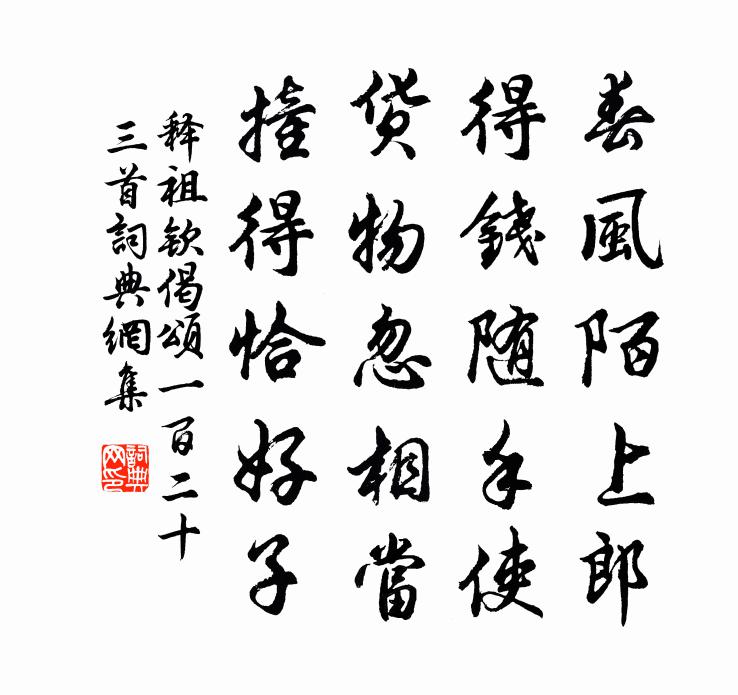 春風陌上郎
得錢随手使
货物忽相當
撞得恰好子
释祖钦偈頌一百二十
三首詞典網集
詞典
网印